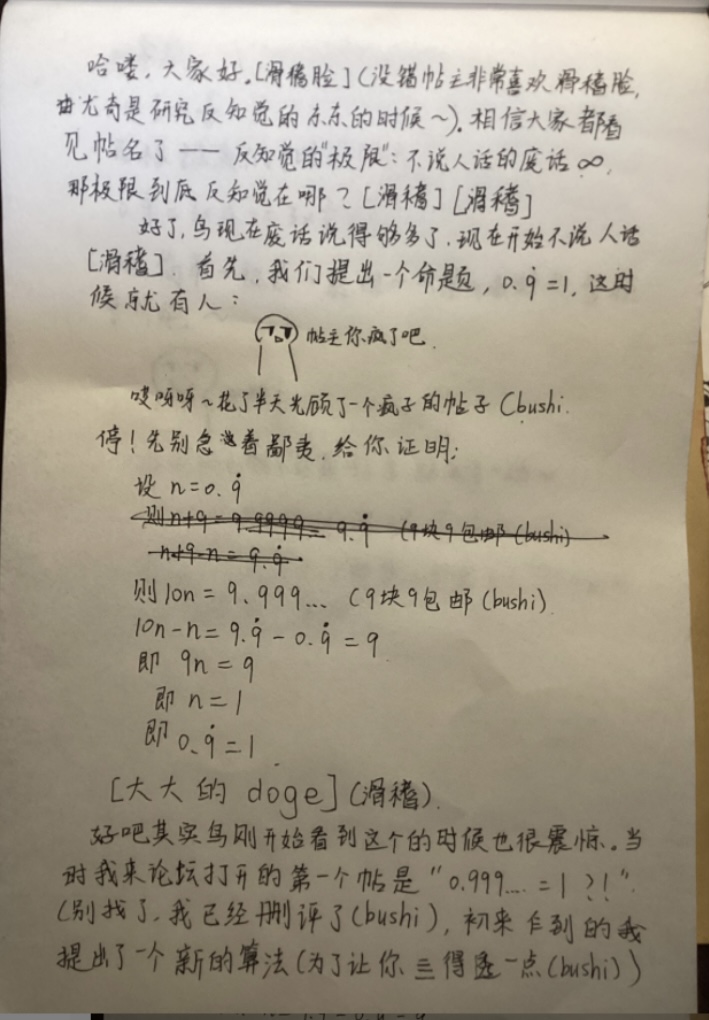 哈喽，大家好。[滑稽脸]（没错帖主非常喜欢滑稽脸，
尤其是研究反知觉的东东的时候~）. 相信大家都看
见帖名了 —— 反知觉的"极限"：不说人话的废话∞，
那极限到底反知觉在哪？[滑稽][滑稽]
好了，鸟现在废话说得够多了，现在开始不说人话
[滑稽]. 首先，我们提出一个命题，0.9̇=1, 这时
候就有人：
帖主你疯了吧.
哎呀呀~花了半天光顾了一个疯子的帖子（bushi.
停！先别急着鄙夷. 给你证明：
设 n=0.9̇
则 n+9=9.9999= 9.9̇ （9块9包邮（bushi）
n+9-n=9.9̇
则10n = 9.999... （9块9包邮（bushi）
10n-n=9.9̇-0.9̇=9
即 9n=9
即 n=1
即 0.9̇=1.
[大大的 doge]（滑稽）.
好吧其实鸟刚开始看到这个的时候也很震惊。当
时我来论坛打开的第一个帖是"0.999.... =1?!".
（别找了，我已经删评了（bushi），初来乍到的我
提出了一个新的算法（为了让你 得 一点（bushi））